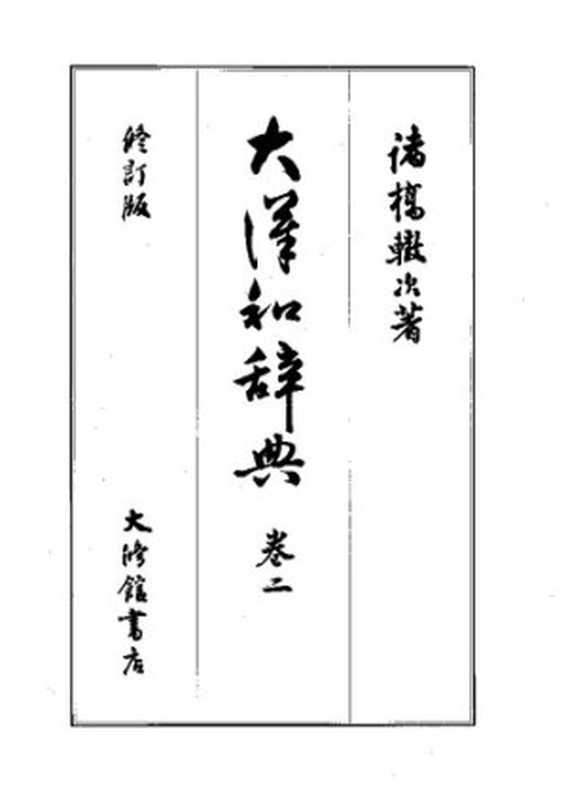 諸橋轍次著
大漢和辞典 巻二
修訂版
大修館書店